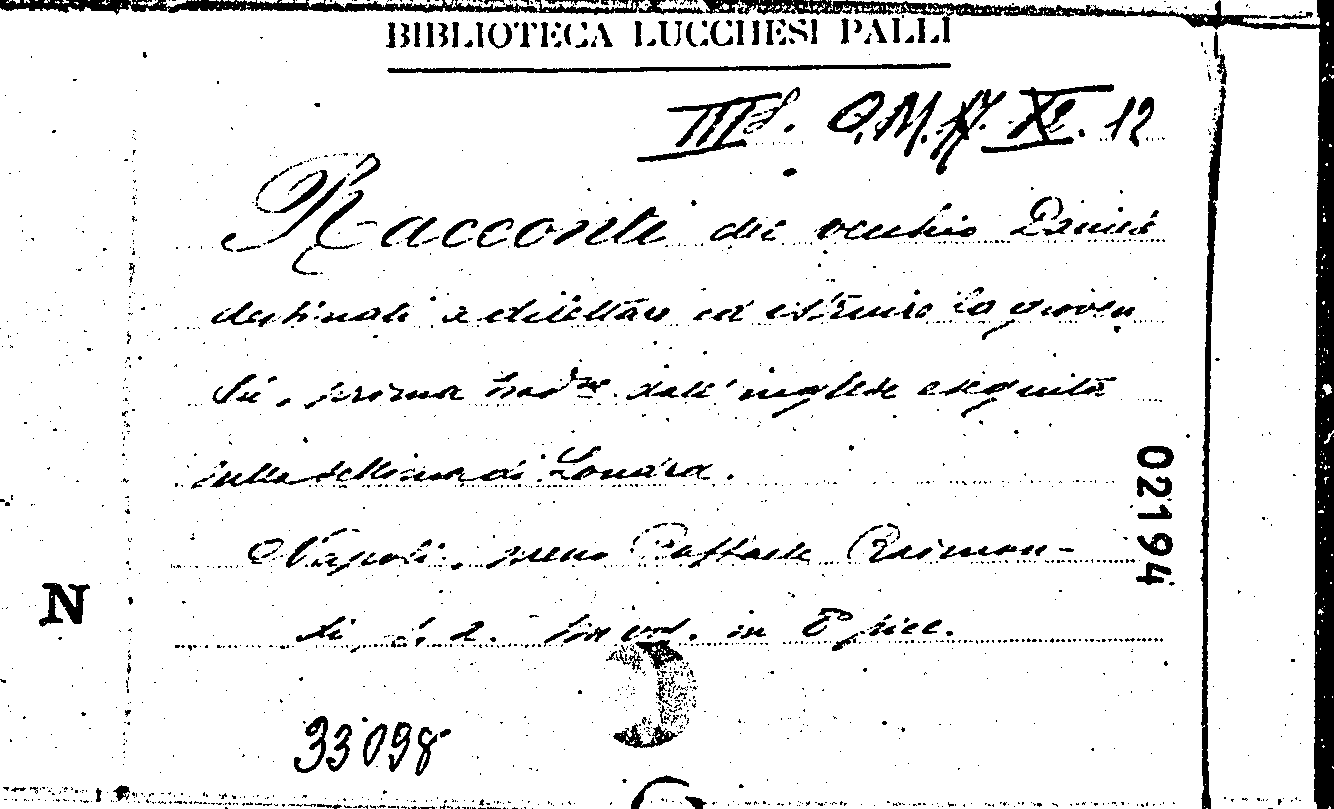 BIBLIOTECA LUCCHESI PALLI
12
Racconti del vecchio Daniele
destinati a dilettare ed istruire la gioven
tù, prima trad.ne dall'inglese eseguita
sulla settima di Londra.
Napoli, presso Raffaele Raimon-
di s. a. Un vol. in 8° picc.
33098
02194
N